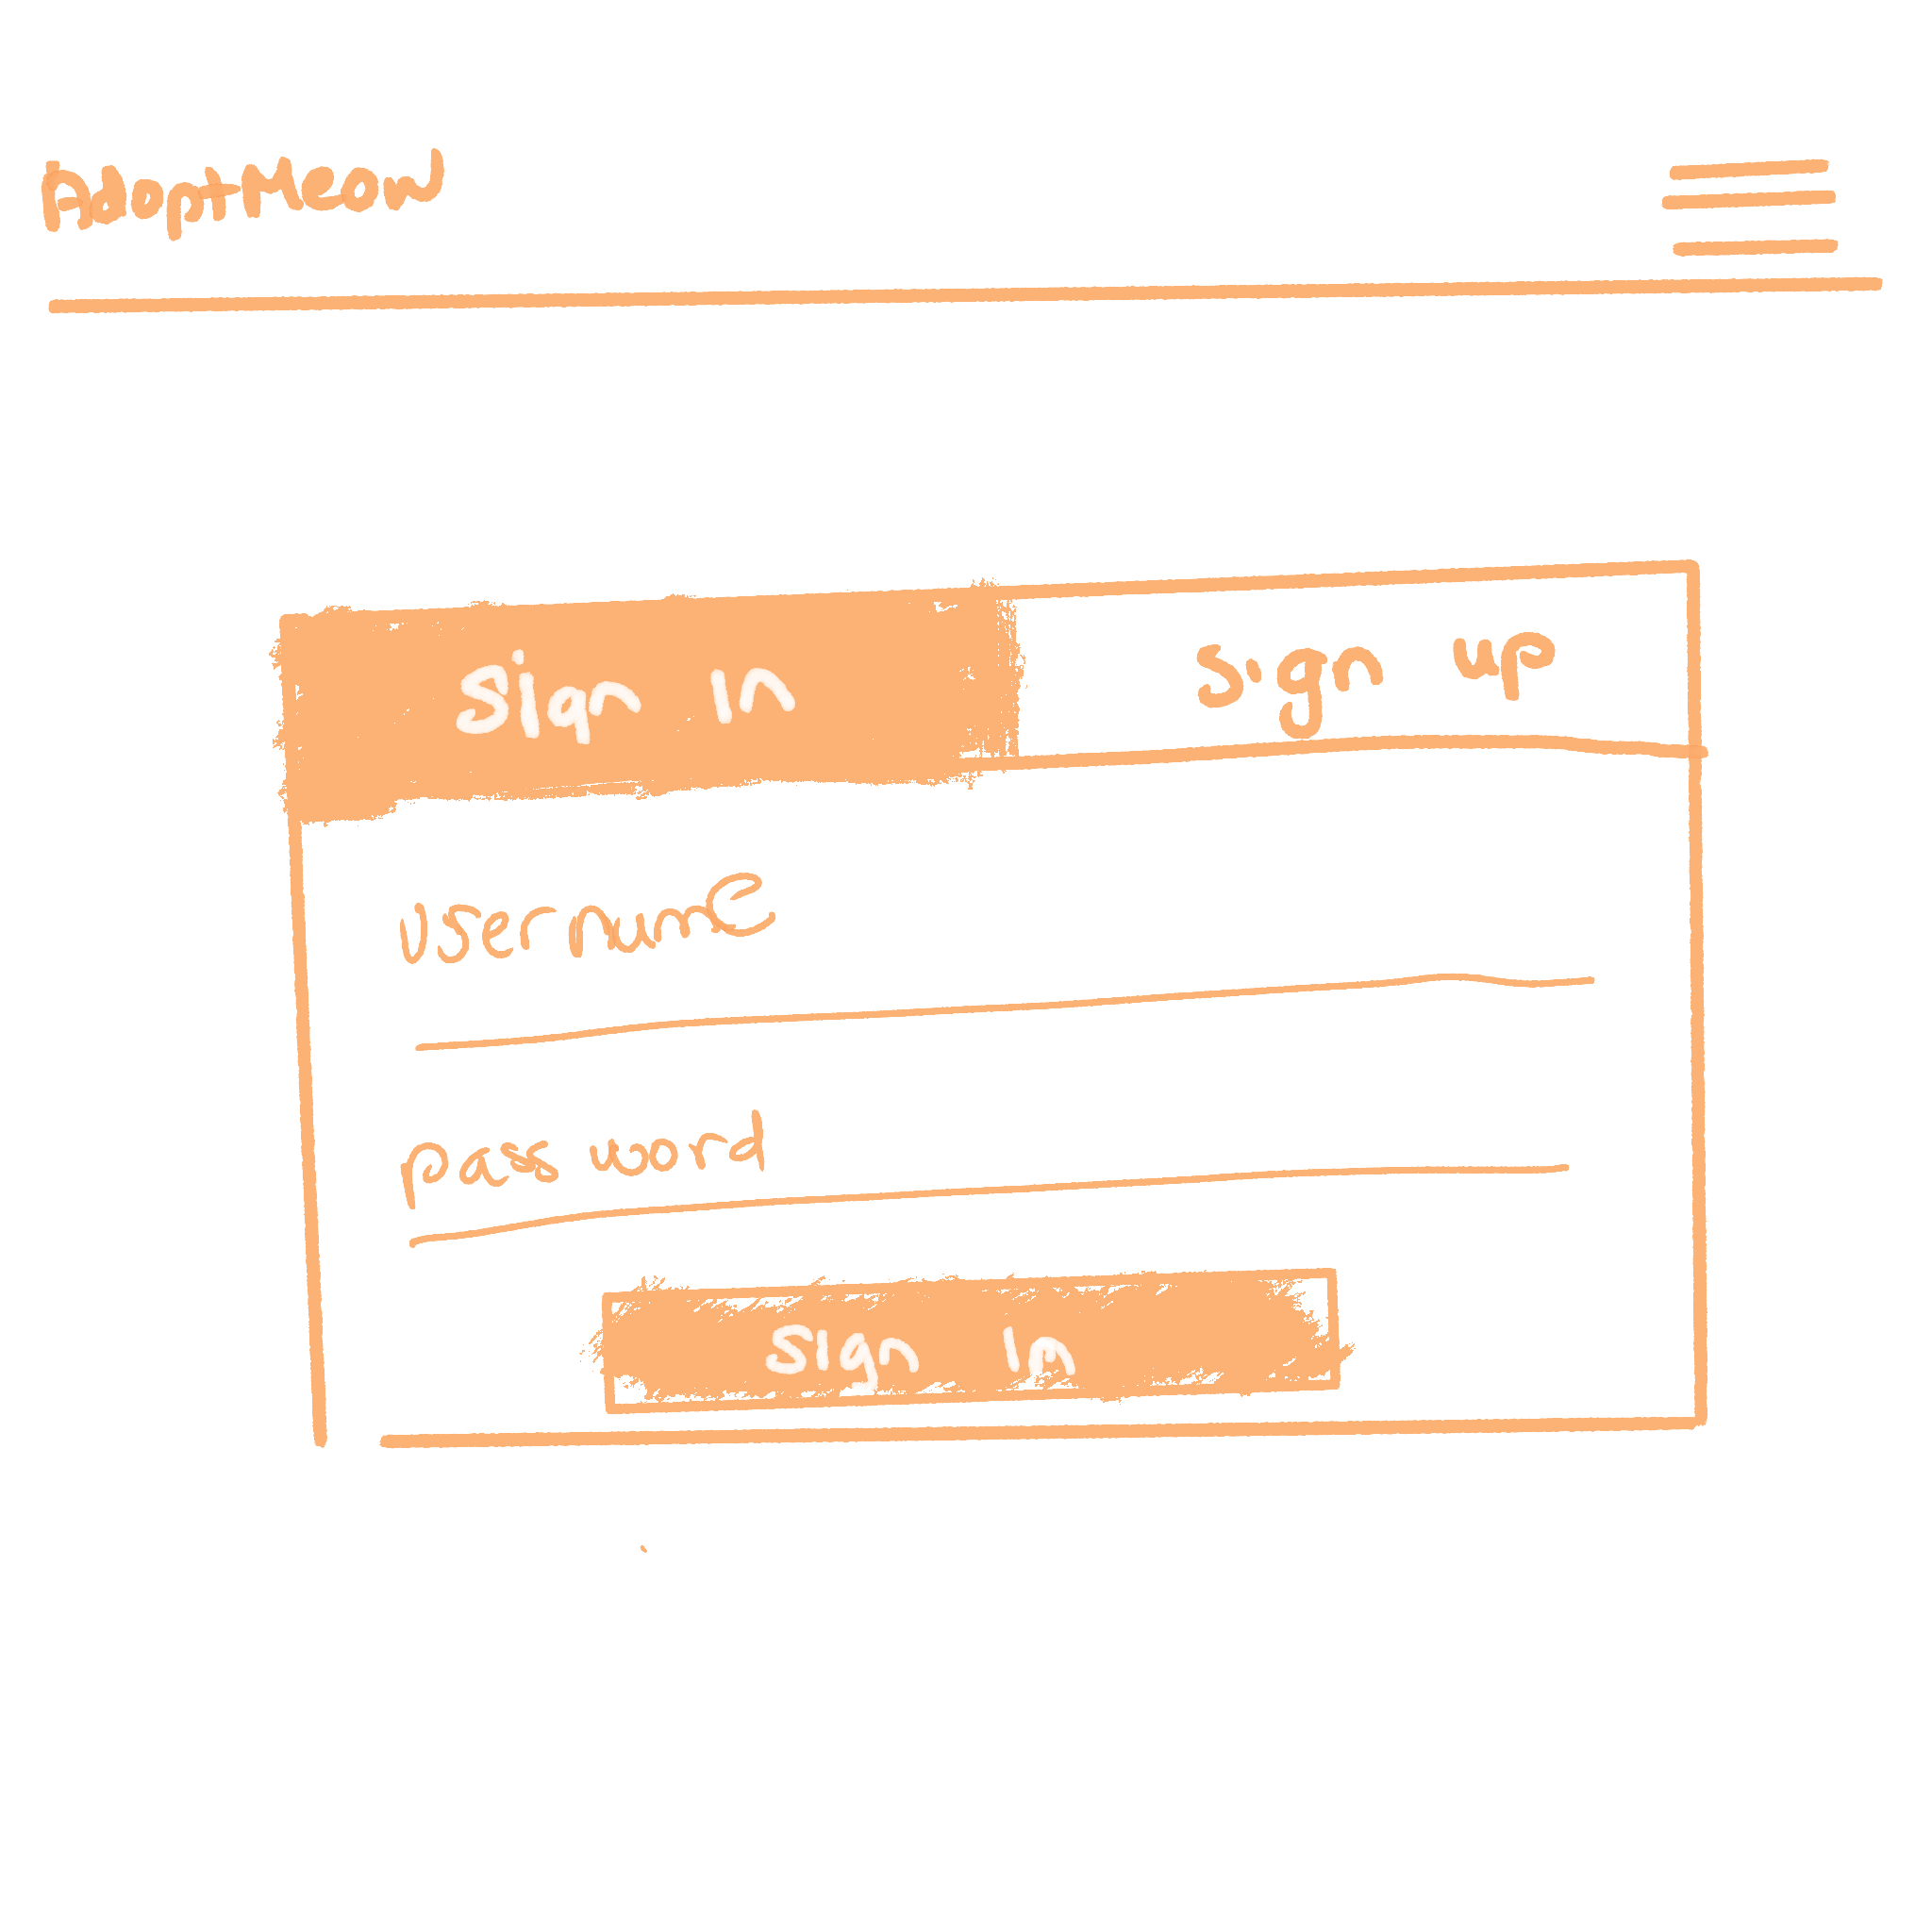 AdoptMeow
Sign In
Sign up
username
password
Sign In